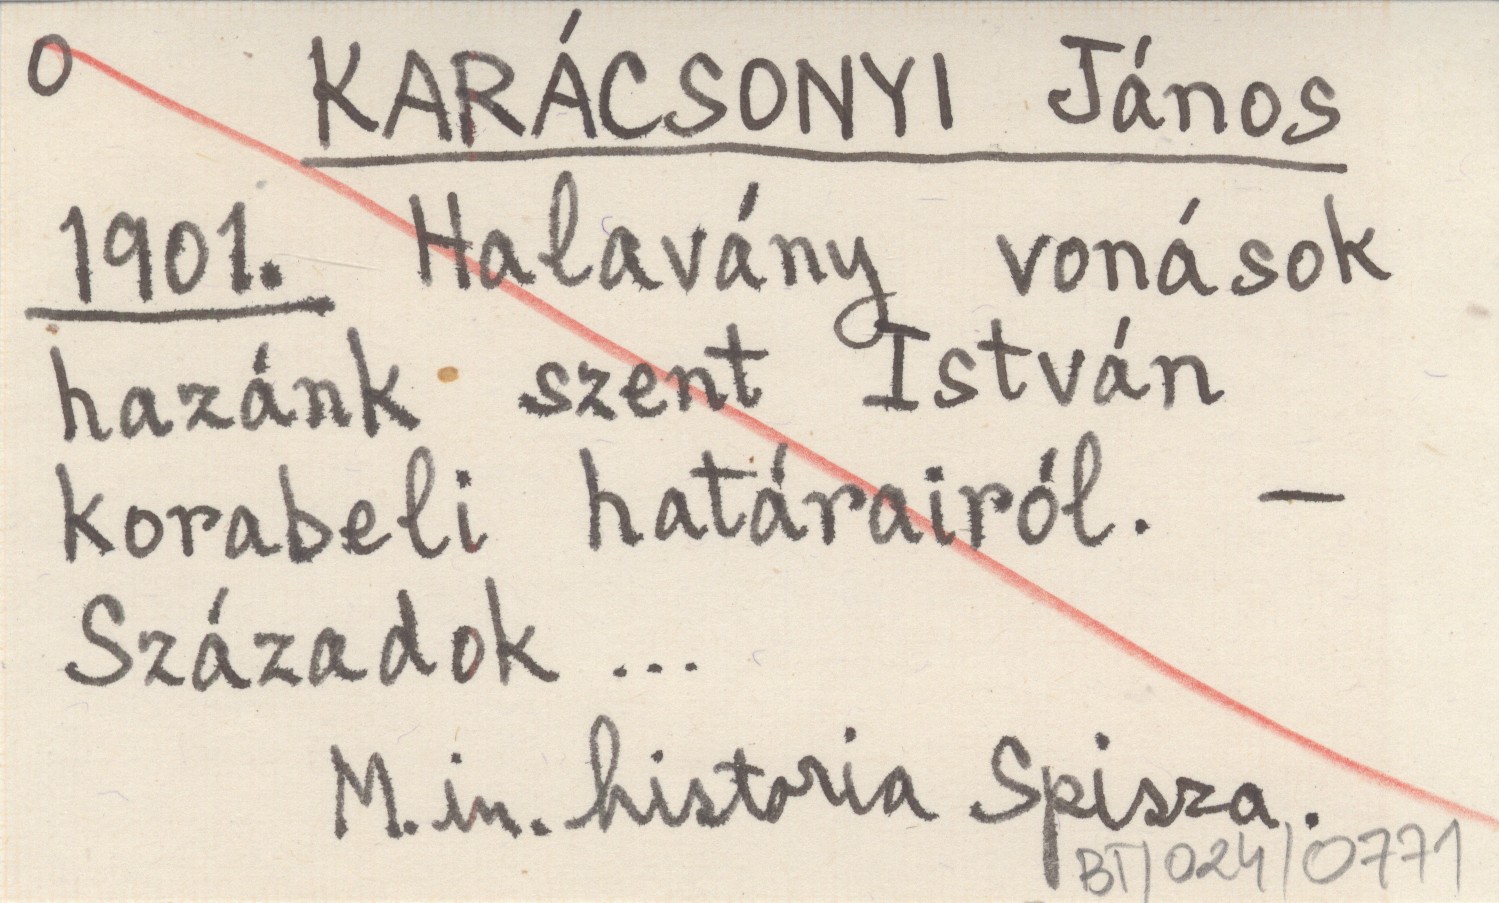 O KARÁCSONYI János
1901. Halavány vonások
hazánk szent István
korabeli határairól. —
Századok ...
M. in. historia Spisza.
BT/024/0771